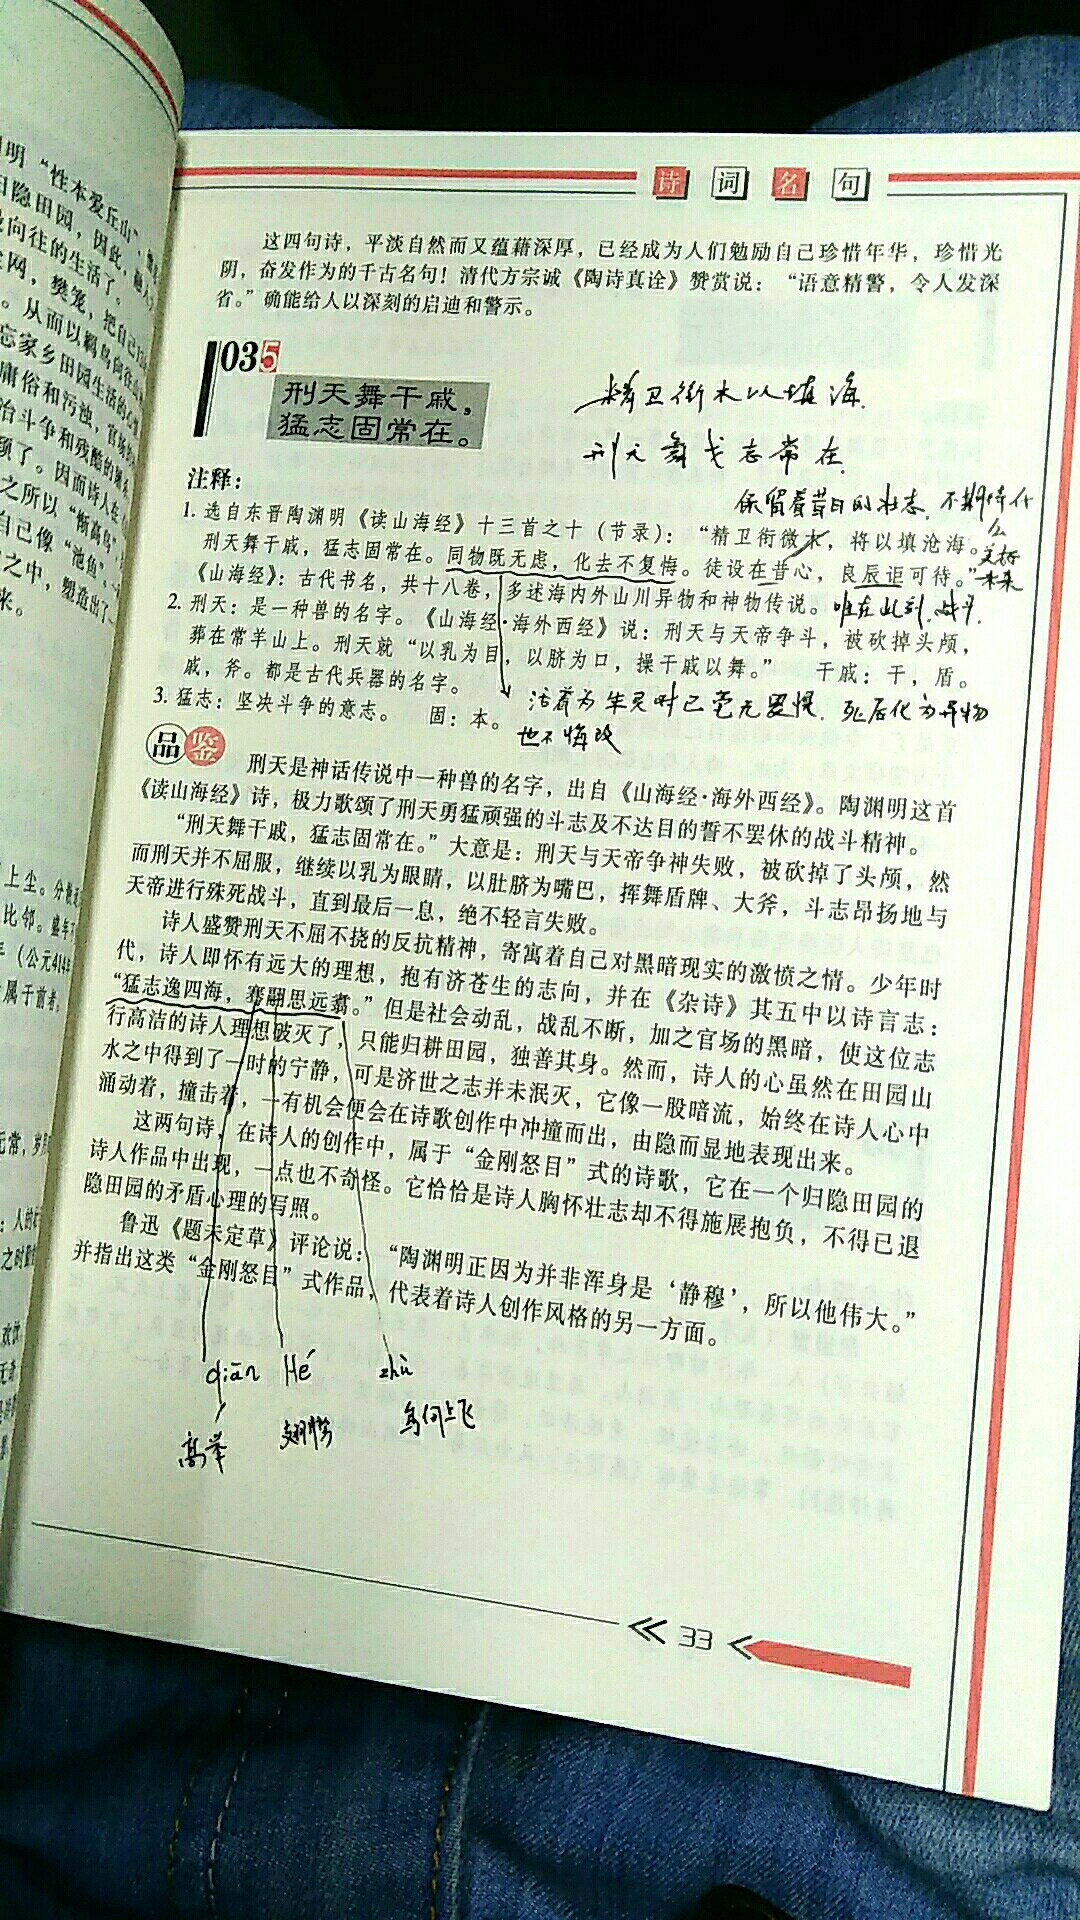 明“性本爱丘山”
归隐田园，因此，
向往的生活了。
网，樊笼，把自己
。从而以羁鸟向往
忘家乡田园生活的心
庸俗和污浊，官场的
治斗争和残酷的
顿了。因而诗人在
之所以“惭高鸟”
自己像“池鱼”
之中，塑造出了一
来。
上尘。分散
比邻。盛年不
（公元414年
属于前者。
诗词名句
这四句诗，平淡自然而又蕴藉深厚，已经成为人们勉励自己珍惜年华，珍惜光
阴，奋发作为的千古名句！清代方宗诚《陶诗真诠》赞赏说：“语意精警，令人发深
省。”确能给人以深刻的启迪和警示。
035
刑天舞干戚，
猛志固常在。
精卫衔木以填海，
刑天舞戈志常在
保留着昔日的壮志，不期待什
么
美好
未来
唯在此刻，战斗，
注释：
1. 选自东晋陶渊明《读山海经》十三首之十（节录）：“精卫衔微木，将以填沧海。
刑天舞干戚，猛志固常在。同物既无虑，化去不复悔。徒设在昔心，良辰讵可待。”
《山海经》：古代书名，共十八卷，多述海内外山川异物和神物传说。
2. 刑天：是一种兽的名字。《山海经·海外西经》说：刑天与天帝争斗，被砍掉头颅，
葬在常羊山上。刑天就“以乳为目，以脐为口，操干戚以舞。” 干戚：干，盾。
戚，斧。都是古代兵器的名字。
3. 猛志：坚决斗争的意志。 固：本。
活着为生灵时已毫无畏惧，死后化为异物
也不悔改
品鉴
刑天是神话传说中一种兽的名字，出自《山海经·海外西经》。陶渊明这首
《读山海经》诗，极力歌颂了刑天勇猛顽强的斗志及不达目的誓不罢休的战斗精神。
“刑天舞干戚，猛志固常在。”大意是：刑天与天帝争神失败，被砍掉了头颅，然
而刑天并不屈服，继续以乳为眼睛，以肚脐为嘴巴，挥舞盾牌、大斧，斗志昂扬地与
天帝进行殊死战斗，直到最后一息，绝不轻言失败。
诗人盛赞刑天不屈不挠的反抗精神，寄寓着自己对黑暗现实的激愤之情。少年时
代，诗人即怀有远大的理想，抱有济苍生的志向，并在《杂诗》其五中以诗言志：
“猛志逸四海，骞翮思远翥。”但是社会动乱，战乱不断，加之官场的黑暗，使这位志
行高洁的诗人理想破灭了，只能归耕田园，独善其身。然而，诗人的心虽然在田园山
水之中得到了一时的宁静，可是济世之志并未泯灭，它像一股暗流，始终在诗人心中
涌动着，撞击着，一有机会便会在诗歌创作中冲撞而出，由隐而显地表现出来。
这两句诗，在诗人的创作中，属于“金刚怒目”式的诗歌，它在一个归隐田园的
诗人作品中出现，一点也不奇怪。它恰恰是诗人胸怀壮志却不得施展抱负，不得已退
隐田园的矛盾心理的写照。
鲁迅《题未定草》评论说：“陶渊明正因为并非浑身是‘静穆’，所以他伟大。”
并指出这类“金刚怒目”式作品，代表着诗人创作风格的另一方面。
qiān Hé zhù
高举 翅膀 鸟向上飞
33